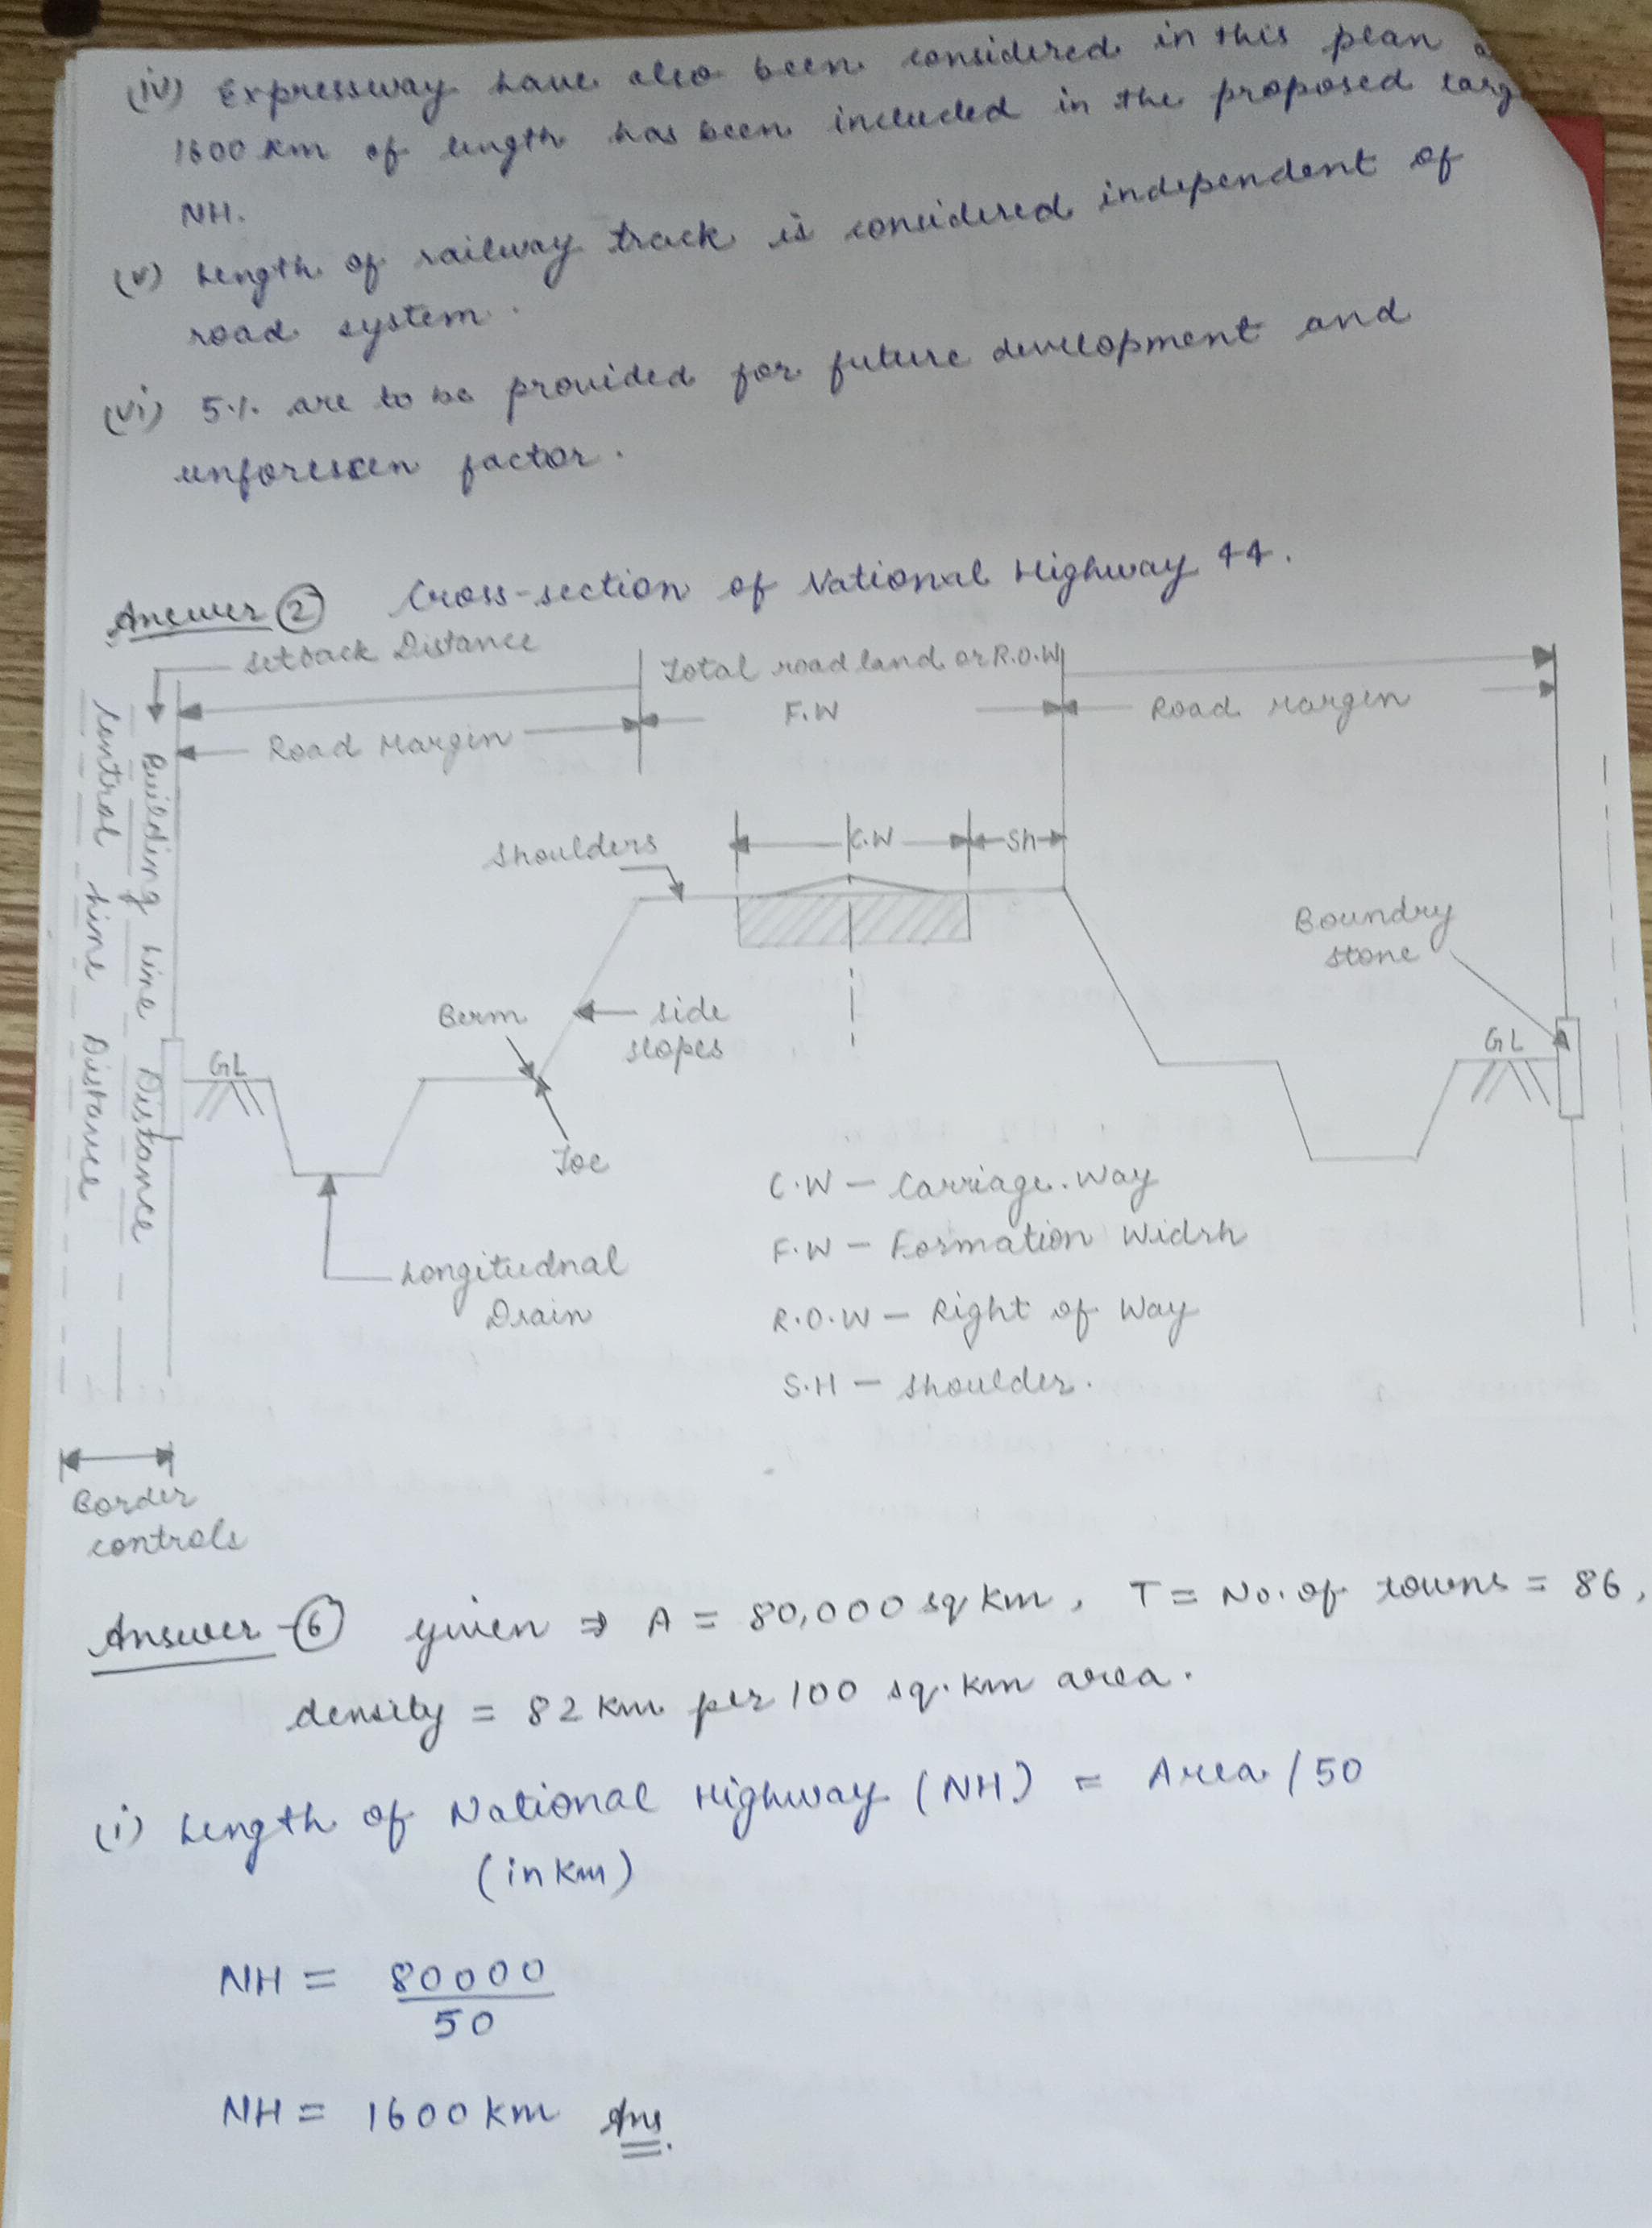 (iv) Expressway have also been considered in this plan
1600 km of length has been included in the proposed
NH.
(v) Length of railway track is considered independent of
road system.
(vi) 5% are to be provided for future development and
unforeseen factor.
Answer ② Cross-section of National Highway 44.
Setback Distance
Total road land or R.O.W
F.W
Road Margin
Road Margin
Control Line Distance
Building Line Distance
Shoulders
C.W
Sh
Boundry
stone
Berm
side
slopes
GL
GL
Toe
Longitudnal
Drain
C.W – Carriage.Way
F.W – Formation Widrh
R.O.W – Right of Way
S.H – Shoulder.
Border
controls
Answer -⑥ given ⇒ A = 80,000 sq km, T = No. of towns = 86,
density = 82 km per 100 sq.km area.
(i) Length of National Highway (NH) = Area / 50
(in km)
NH = 80000
50
NH = 1600 km Ans.